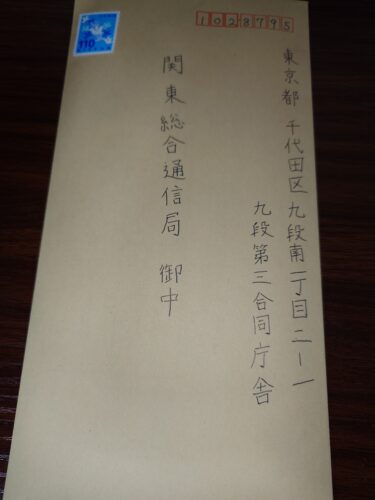 110
1028795
東京都 千代田区 九段南一丁目二ー一
九段第三合同庁舎
関東総合通信局 御中